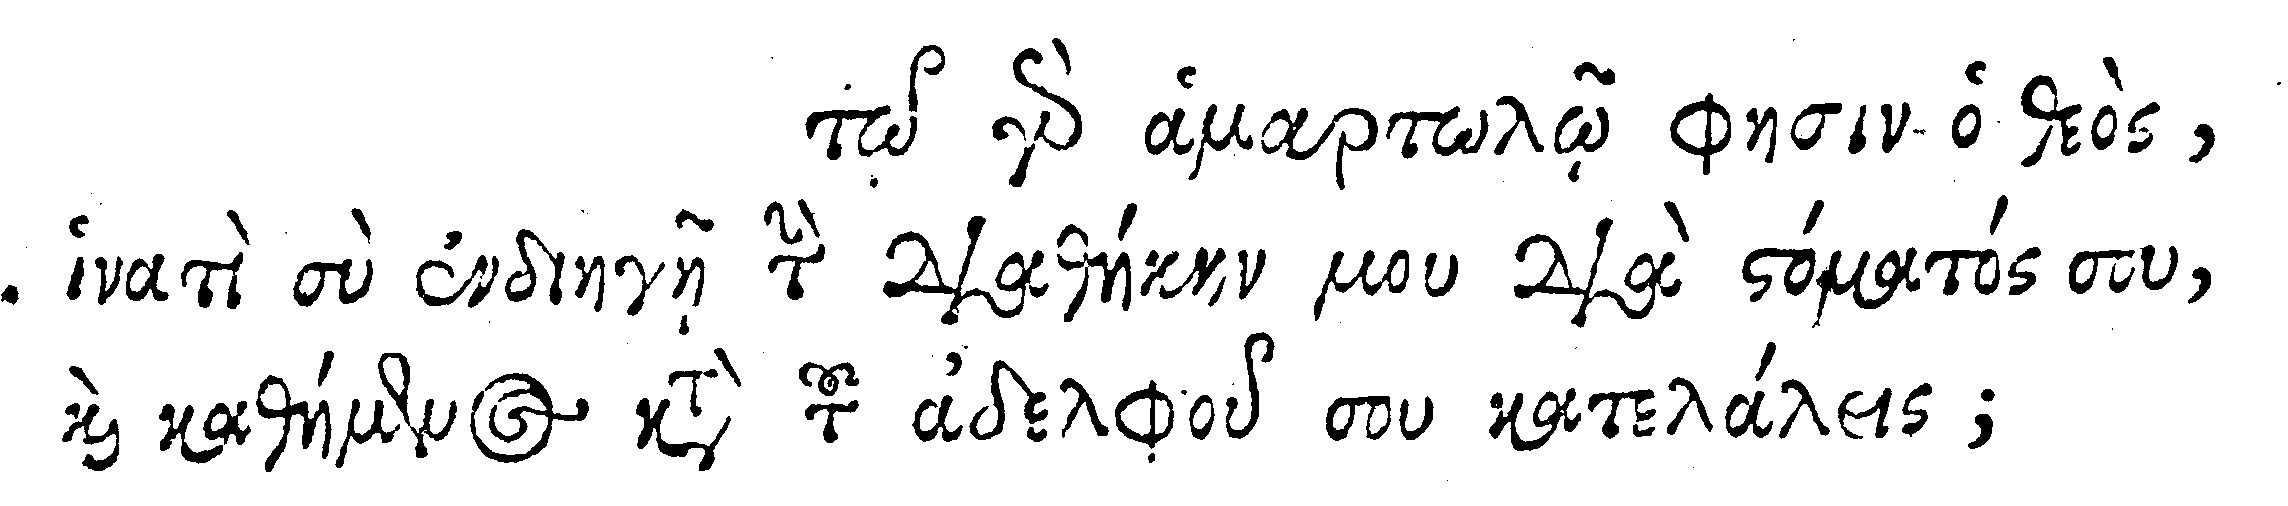 τῷ γὰρ ἁμαρτωλῷ φησιν ὁ θεὸς,
ἱνατὶ σὺ ἐνδιηγῇ τὴν διαθήκην μου διὰ στόματός σου,
καὶ καθήμενος κατὰ τοῦ ἀδελφοῦ σου κατελάλεις;